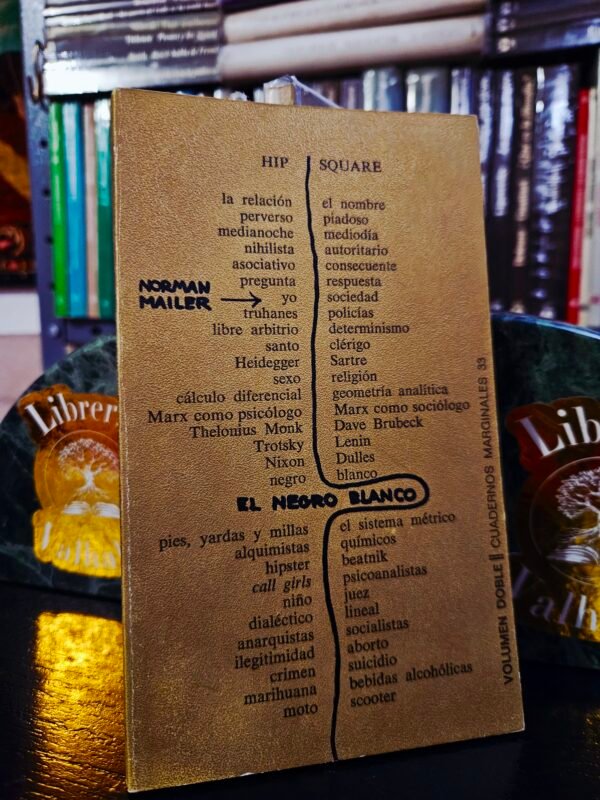 HIP SQUARE
la relación el nombre
perverso piadoso
medianoche mediodía
nihilista autoritario
asociativo consecuente
pregunta respuesta
NORMAN
MAILER → yo sociedad
truhanes policías
libre arbitrio determinismo
santo clérigo
Heidegger Sartre
sexo religión
cálculo diferencial geometría analítica
Marx como psicólogo Marx como sociólogo
Thelonius Monk Dave Brubeck
Trotsky Lenin
Nixon Dulles
negro blanco
EL NEGRO BLANCO
pies, yardas y millas el sistema métrico
alquimistas químicos
hipster beatnik
call girls psicoanalistas
niño juez
dialéctico lineal
anarquistas socialistas
ilegitimidad aborto
crimen suicidio
marihuana bebidas alcohólicas
moto scooter
VOLUMEN DOBLE || CUADERNOS MARGINALES 33
Librer
Valhal
Lib
Valh